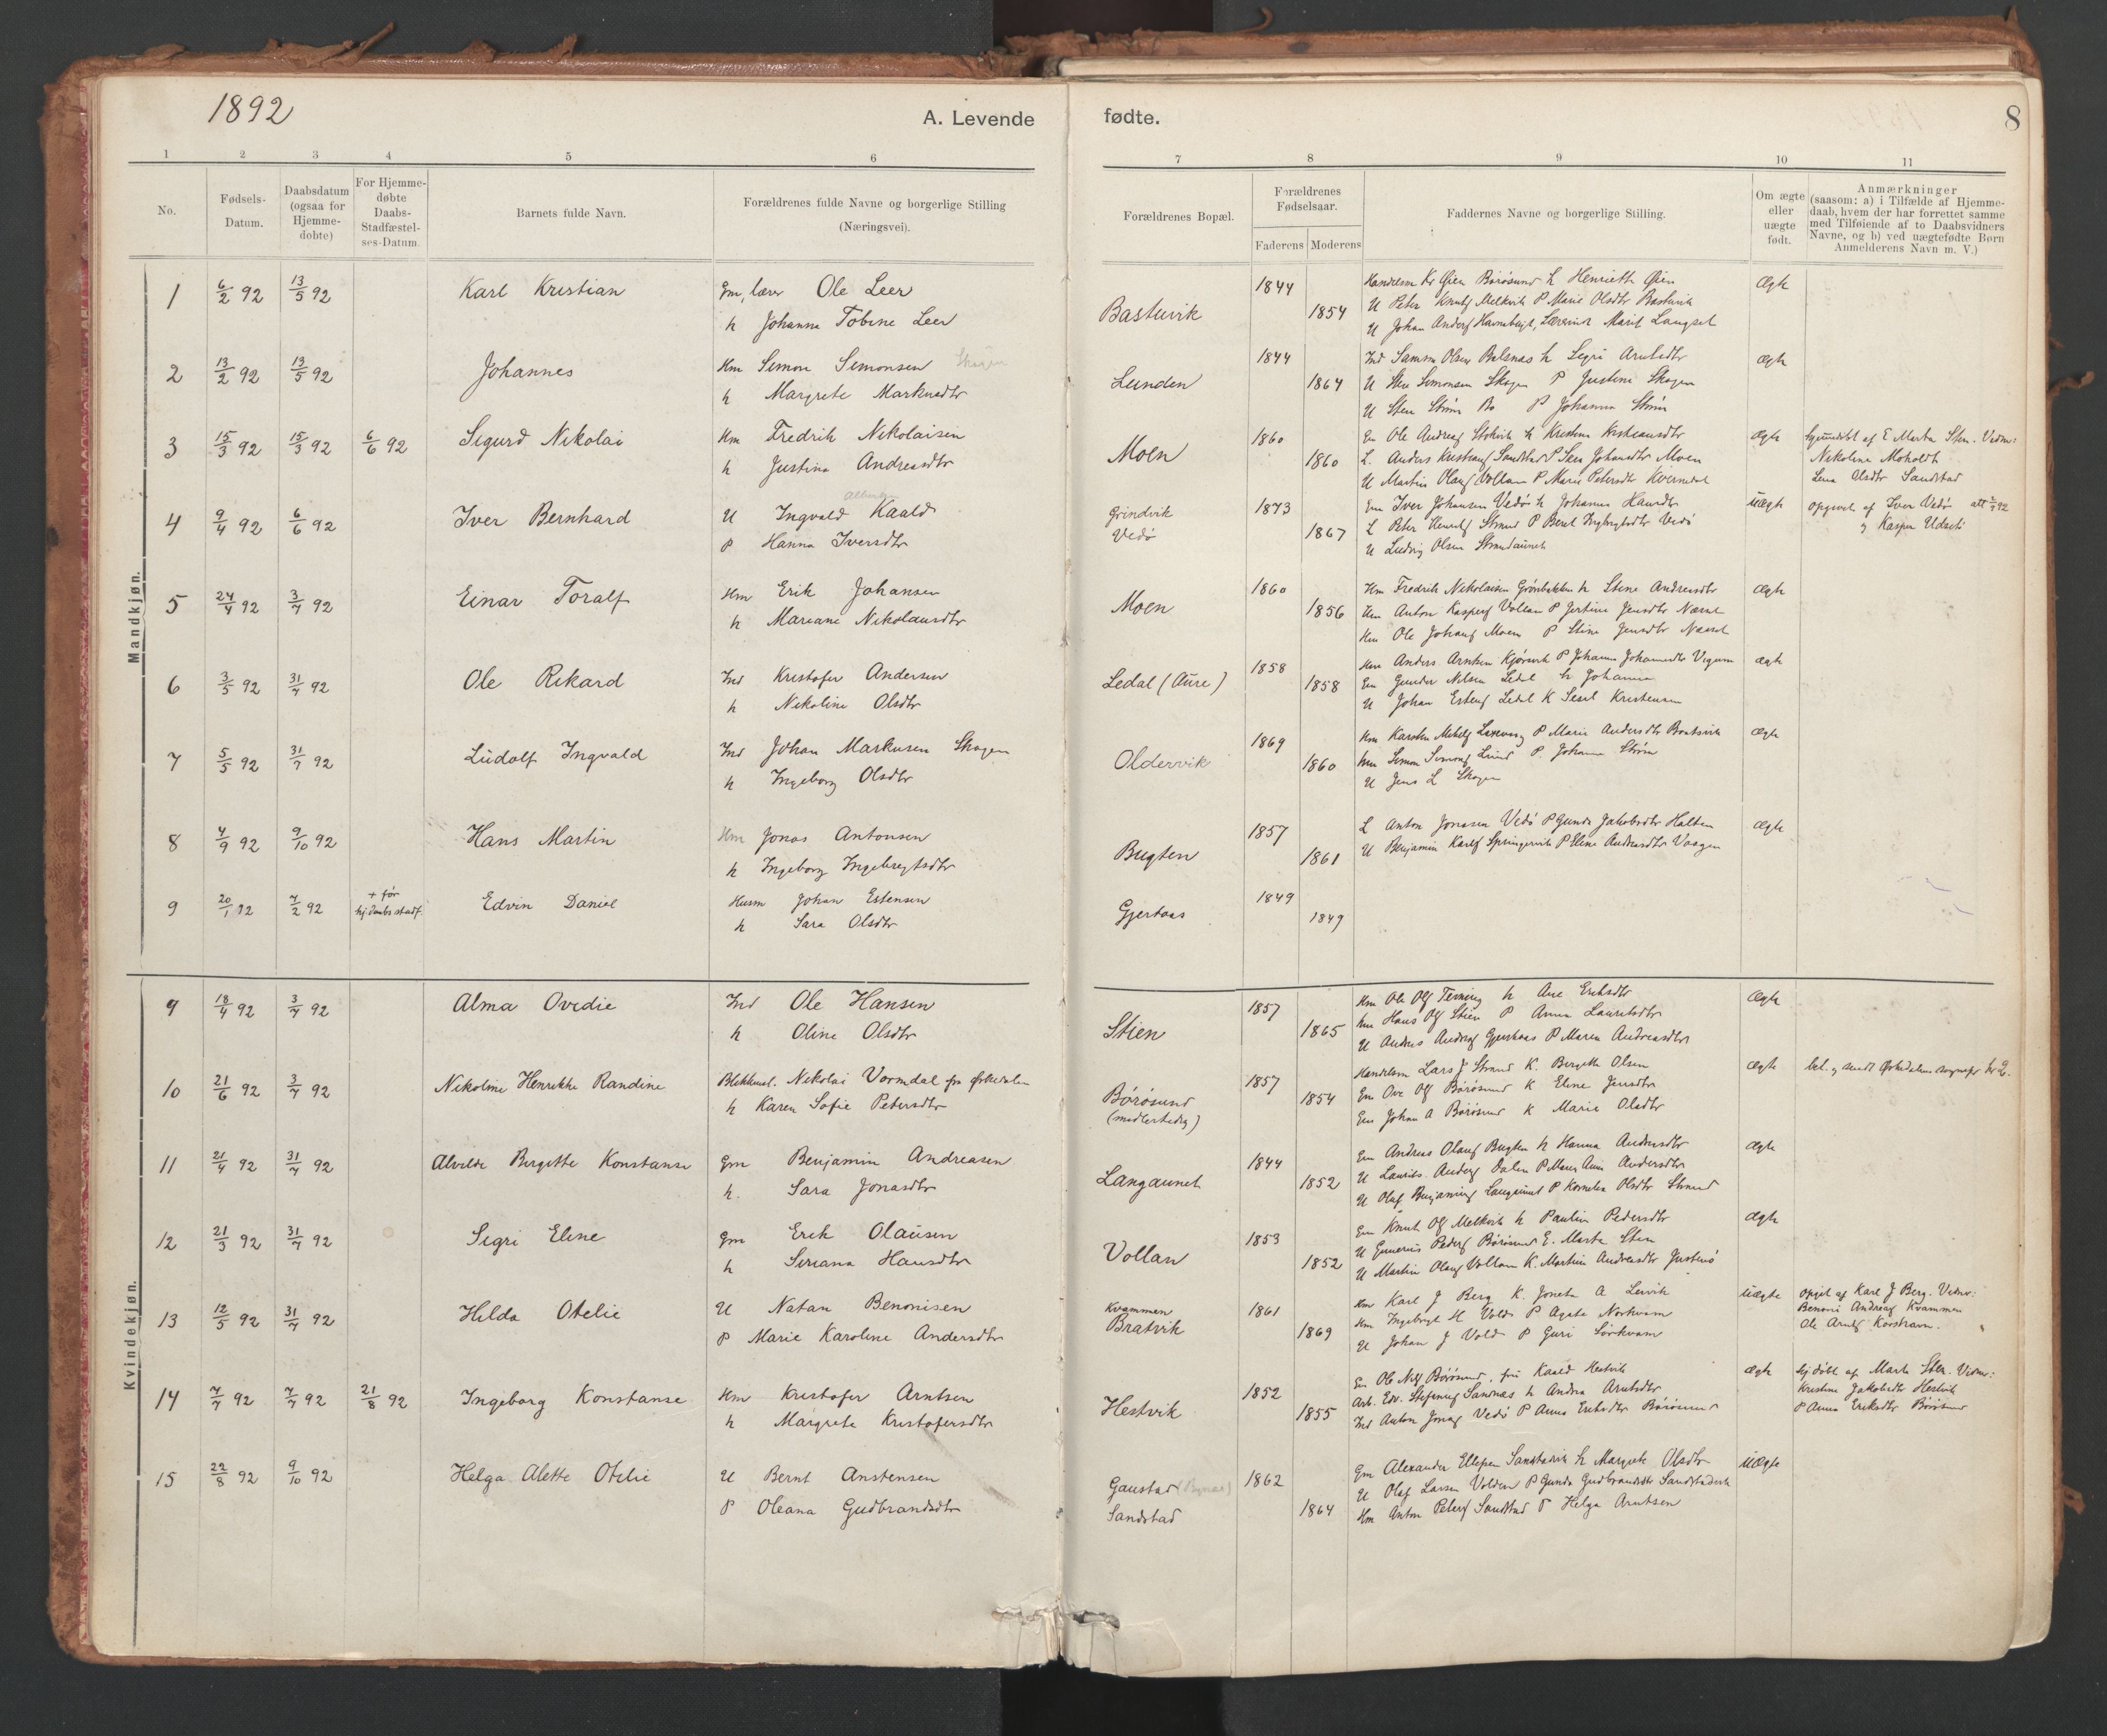 1892
A. Levende fødte.
8
1 2 3 4 5 6 7 8 9 10 11
No.
Fødsels-
Datum.
Daabsdatum
(ogsaa for
Hjemme-
døbte)
For Hjemme-
døbte
Daabs-
Stadfæstel-
ses-Datum.
Barnets fulde Navn.
Forældrenes fulde Navne og borgerlige Stilling
(Næringsvei).
Forældrenes Bopæl.
Forældrenes
Fødselsaar.
Faderens Moderens
Faddernes Navne og borgerlige Stilling.
Om ægte
eller
uægte
født.
Anmærkninger
(saasom: a) i Tilfælde af Hjemme-
daab, hvem der har forrettet samme
med Tilføiende af to Daabsvidners
Navne, og b) ved uægtefødte Børn
Anmelderens Navn m. V.)
Mandkjøn.
1 6/2 92 13/5 92 Karl Kristian Gm, lærer Ole Leer
h Johanna Tobine Leer
Bastuvik 1844 1854 Ægte
Handelsm Kr Øien Børøsund h Henriette Øien
U Peter Knuts Melkvik P Marie Olsdtr Bastuvik
U Johan Anders Havnebugt, Lærerinde Marit Langset
2 13/2 92 13/5 92 Johannes Hm Simon Simonsen Skagen
h Margrete Markusdtr
Lunden 1844 1864 ægte
Ind Samson Olsen Balsnæs h Segri Arntsdtr
U Sten Simonsen Skagen P Justine Skagen
U Sten Strøm Bo P Johanna Strøm
3 15/3 92 15/3 92 6/6 92 Sigurd Nikolai Hm Fredrik Nikolaisen
h Justina Andreasdtr
Moen 1860 1860 Ægte
Em Ole Andreas Stokvik h Kristine Kristiansdtr
L. Anders Kristians Sandstad P Sera Johansdtr Moen
U Martin Olaus Vollan P Marie Petersdtr Kverndal
hjemdøbt af E Marta Sten. Vidner:
Nikoline Moholdt
Lena Olsdtr Sandstad
4 9/4 92 6/6 92 Iver Bernhard U Ingvald Kaald
P Hanna Iversdtr
Grindvik
Vedø 1873 1867 uægte
Em Iver Johansen Vedø h Johanna Hansdtr
L Peter Strand P Beret Ingbrigtsdtr Vedø
U Ludvig Olsen Strandaunet
opgivet af Iver Vedø
og Kasper Udseth
5 24/4 92 3/7 92 Einar Toralf Hm Erik Johansen
h Mariane Nikolausdtr
Moen 1860 1856 Ægte
Hm Fredrik Nikolaisen Grønbakken h Stine Andreasdtr
Hm Anton Kaspers Vollan P Jertine Jensdtr Næsset
Hm Ole Johans Moen P Stine Jensdtr Næsset
6 3/5 92 31/7 92 Ole Rikard Ind Kristofer Andersen
h Nikoline Olsdtr
Ledal (Aure) 1858 1858 ægte
Hm Anders Arntsen Kjørsvik P Johanna Johannesdtr
Em Gunder Nilsen Ledal h Johanna
U Johan Estens Ledal K Sesil Kristensen
7 5/5 92 31/7 92 Ludolf Ingvald Ind Johan Markusen Skagen
h Ingeborg Olsdtr
Oldervik 1869 1860 Ægte
P Marie Andersdtr Bratsvik
Hm Simon Simons Lund P. Johanna Strøm
U Jens L Skagen
8 4/9 92 9/10 92 Hans Martin Hm Jonas Antonsen
h Ingeborg Ingebrigtsdtr
Bugten 1857 1861 Ægte
L Anton Jonasen Vedø P Gunda Jakobsdtr Halten
U Benjamin Karls Springervik P Eline Andreasdtr Vaagen
9 20/1 92 7/2 92 + før
hj.daabs stadf. Edvin Daniel Husm Johan Estensen
h Sara Olsdtr
Gjertaas 1849 1849
Kvindekjøn.
9 18/4 92 3/7 92 Alma Ovedie Ind Ole Hansen
h Oline Olsdtr
Stien 1857 1865 Ægte
Hm Ole Ols Terning h Ane Eriksdtr
Hm Hans Ols Stien P Anna Lauritsdtr
U Anders Andreas Gjershaas P Maren Andreasdtr
10 21/6 92 3/7 92 Nikoline Henrikke Randine Blikkensl. Nikolai Vormdal fra Orkedalen
h Karen Sofie Petersdtr
Børøsund
(midlertidig) 1857 1854 ægte
Handelsm Lars J Strand K. Bergitte Olsen
Em Ove Ols Børøsund K Eline Jensdtr
Em Johan A Børøsund K Marie Olsdtr
11 21/4 92 31/7 92 Alvilde Bergitte Konstanse Gm Benjamin Andreasen
h. Sara Jonasdtr
Langaunet 1844 1852 ægte
Em Andreas Olaus Bugten h Hanna Andreasdtr
U Laurits Anders Dalen P Maren Anna Andersdtr
U Olaf Benjamins Langaunet P Kornelia Olsdtr Strand
12 21/3 92 31/7 92 Segri Eline Gm Erik Olausen
h Seriana Hansdtr
Vollan 1853 1852 ægte
Em Knut Ols Melkvik h Pauline Pedersdtr
U Gunerius Peders Børøsund E. Marta Sten
U Martin Olaus Vollan K. Martine Andreasdtr Justenø
13 12/5 92 31/7 92 Hilda Otelie U Natan Benonisen
P Marie Karoline Andersdtr
Kvammen
Bratvik 1861 1869 uægte
Hm Karl J Berg K. Joneta A Lervik
Hm Ingebrigt H Vold P Agata Nordkvam
U Johan J Vold P Guri Sørkvam
opgit af Karl J Berg. Vidner:
Benoni Andreas Kvammen
Ole Arnts Korshavn.
14 7/7 92 7/7 92 21/8 92 Ingeborg Konstanse Hm Kristofer Arntsen
h Margrete Kristofersdtr
Hestvik 1852 1855 ægte
Em Ole Nils Børøsund, fru Kaald Hestvik
Arb. Edv. Stefanus Sandnæs h Andrea Arntsdtr
Ind Anton Jonas Vedø P Anna Eriksdtr Børøsund
hjdøbt af Marta Sten. Vidner:
Kristine Jakobsdtr Hestvik
P Anna Eriksdtr Børøsund
15 22/8 92 9/10 92 Helga Alette Otelie U Bernt Anstensen
P Oleana Gudbrandsdtr
Gaustad (Bynæs)
Sandstad 1862 1864 uægte
Gm Alexander Ellefsen Sandstadvik h Margrete Olsdtr
U Olaf Larsen Volden P Gunda Gudbrandsdtr Sandstadvik
Hm Anton Peters Sandstad P Helga Arntsen